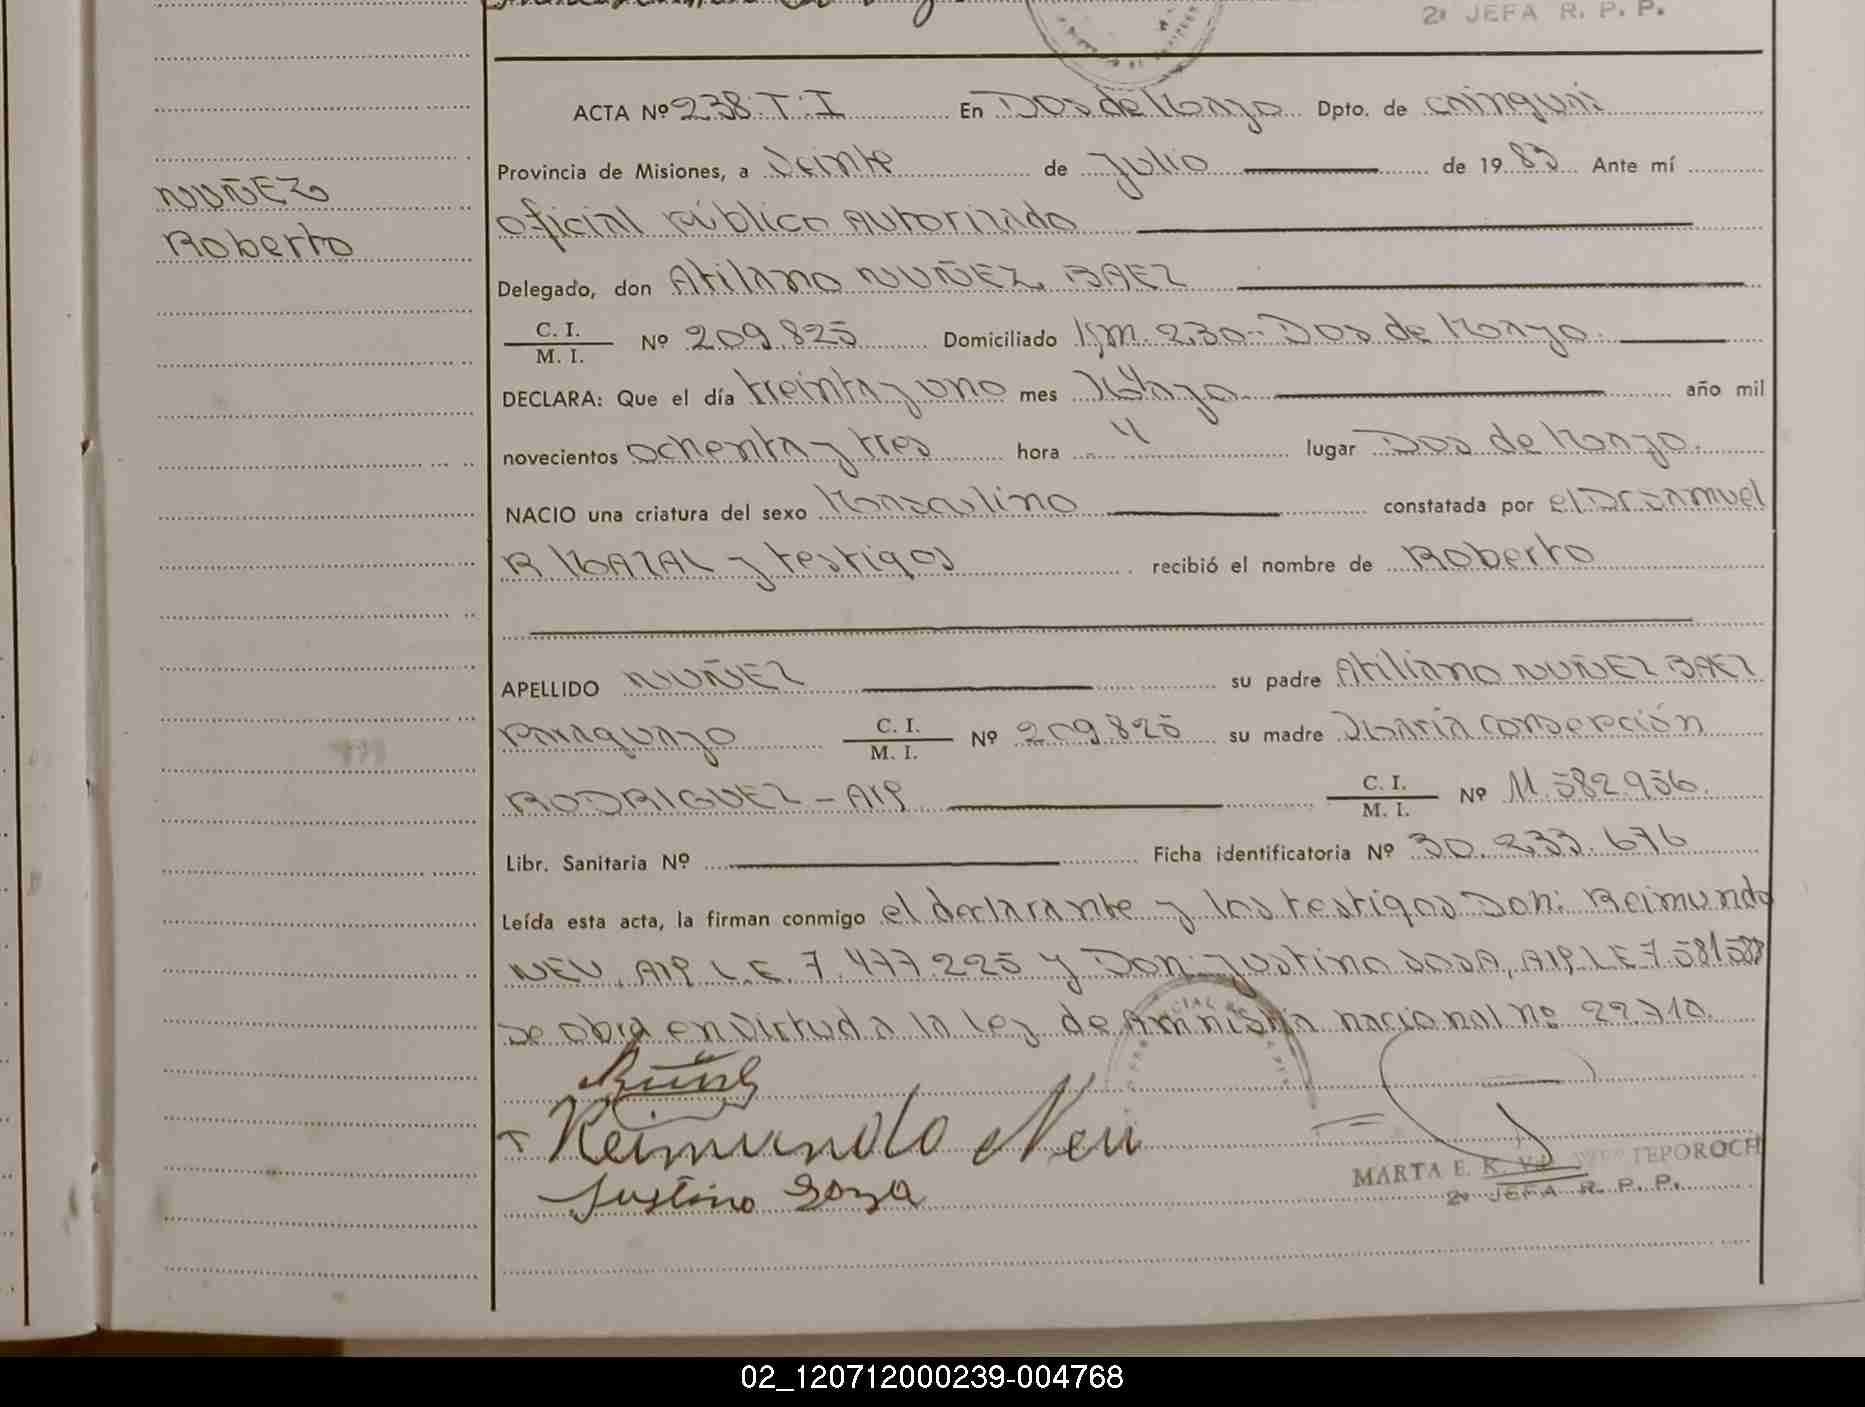 2ª JEFA R. P. P.
ACTA Nº 238. T. I En Dos de Mayo Dpto. de Cainguas
Provincia de Misiones, a Veinte de Julio de 1983 Ante mí
Oficial Público Autorizado
NUÑEZ
Roberto
Delegado, don Atilano NUÑEZ BAEZ
C. I.
M. I. Nº 209.825 Domiciliado Km. 230- Dos de Mayo
DECLARA: Que el día treinta y uno mes Mayo año mil
novecientos ochenta y tres hora 4 lugar Dos de Mayo.
NACIO una criatura del sexo Masculino constatada por el Dr Samuel
R MAZAL y testigos recibió el nombre de Roberto
APELLIDO NUÑEZ su padre Atiliano NUÑEZ BAEZ
Paraguayo C. I.
M. I. Nº 209.825 su madre Maria Consepción
RODRIGUEZ - Arg C. I.
M. I. Nº 11.582.956.
Libr. Sanitaria Nº Ficha identificatoria Nº 30.233.676
Leída esta acta, la firman conmigo el declarante y los testigos Don: Reimundo
NEU, Arg L.E. 7.477.225 y Don: Justino SOSA, Arg. L E 7.581588
se obra en virtud a la Ley de Amnistia nacional nº 22.710.
Reimundo Neu
Justino Soza
MARTA E. K. TEPOROCH
2ª JEFA R. P. P.
02_120712000239-004768